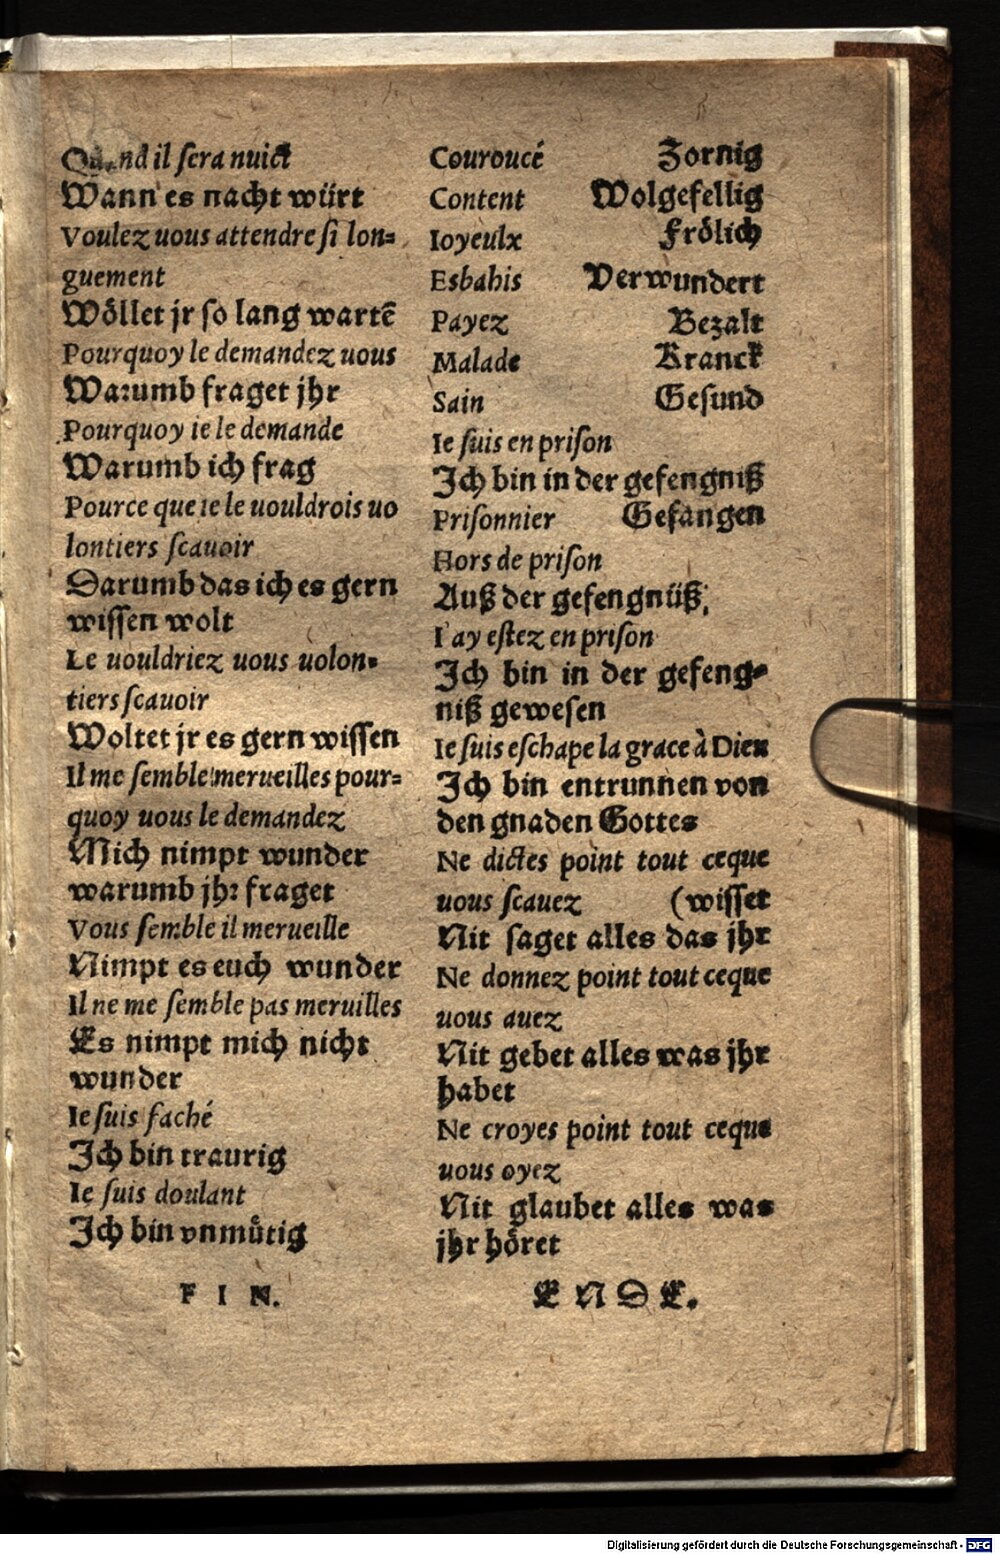 Quand il ſera nuict
Wann es nacht würt
Voulez uous attendre ſi lon⸗
guement
Wöllet jr ſo lang wartē
Pourquoy le demandez uous
Warumb fraget jhr
Pourquoy ie le demande
Warumb ich frag
Pource que ie le uouldrois uo
lontiers ſcauoir
Darumb das ich es gern
wiſſen wolt
Le uouldriez uous uolon⸗
tiers ſcauoir
Woltet jr es gern wiſſen
Il me ſemble merueilles pour⸗
quoy uous le demandez
Mich nimpt wunder
warumb jhr fraget
Vous ſemble il merueille
Nimpt es euch wunder
Il ne me ſemble pas meruilles
Es nimpt mich nicht
wunder
Ie ſuis faché
Ich bin traurig
Ie ſuis doulant
Ich bin vnmuͤtig
FIN.
Couroucé Zornig
Content Wolgefellig
Ioyeulx Frölich
Esbahis Verwundert
Payez Bezalt
Malade Kranck
Sain Geſund
Ie ſuis en priſon
Ich bin in der gefengniß
Priſonnier Gefangen
Hors de priſon
Auß der gefengnüß,
I'ay eſtez en priſon
Ich bin in der gefeng⸗
niß geweſen
Ie ſuis eſchape la grace à Dieu
Ich bin entrunnen von
den gnaden Gottes
Ne dictes point tout ceque
uous ſcauez (wiſſet
Nit ſaget alles das jhr
Ne donnez point tout ceque
uous auez
Nit gebet alles was jhr
habet
Ne croyes point tout ceque
uous oyez
Nit glaubet alles was
jhr höret
ENDE.
Digitalisierung gefördert durch die Deutsche Forschungsgemeinschaft - DFG